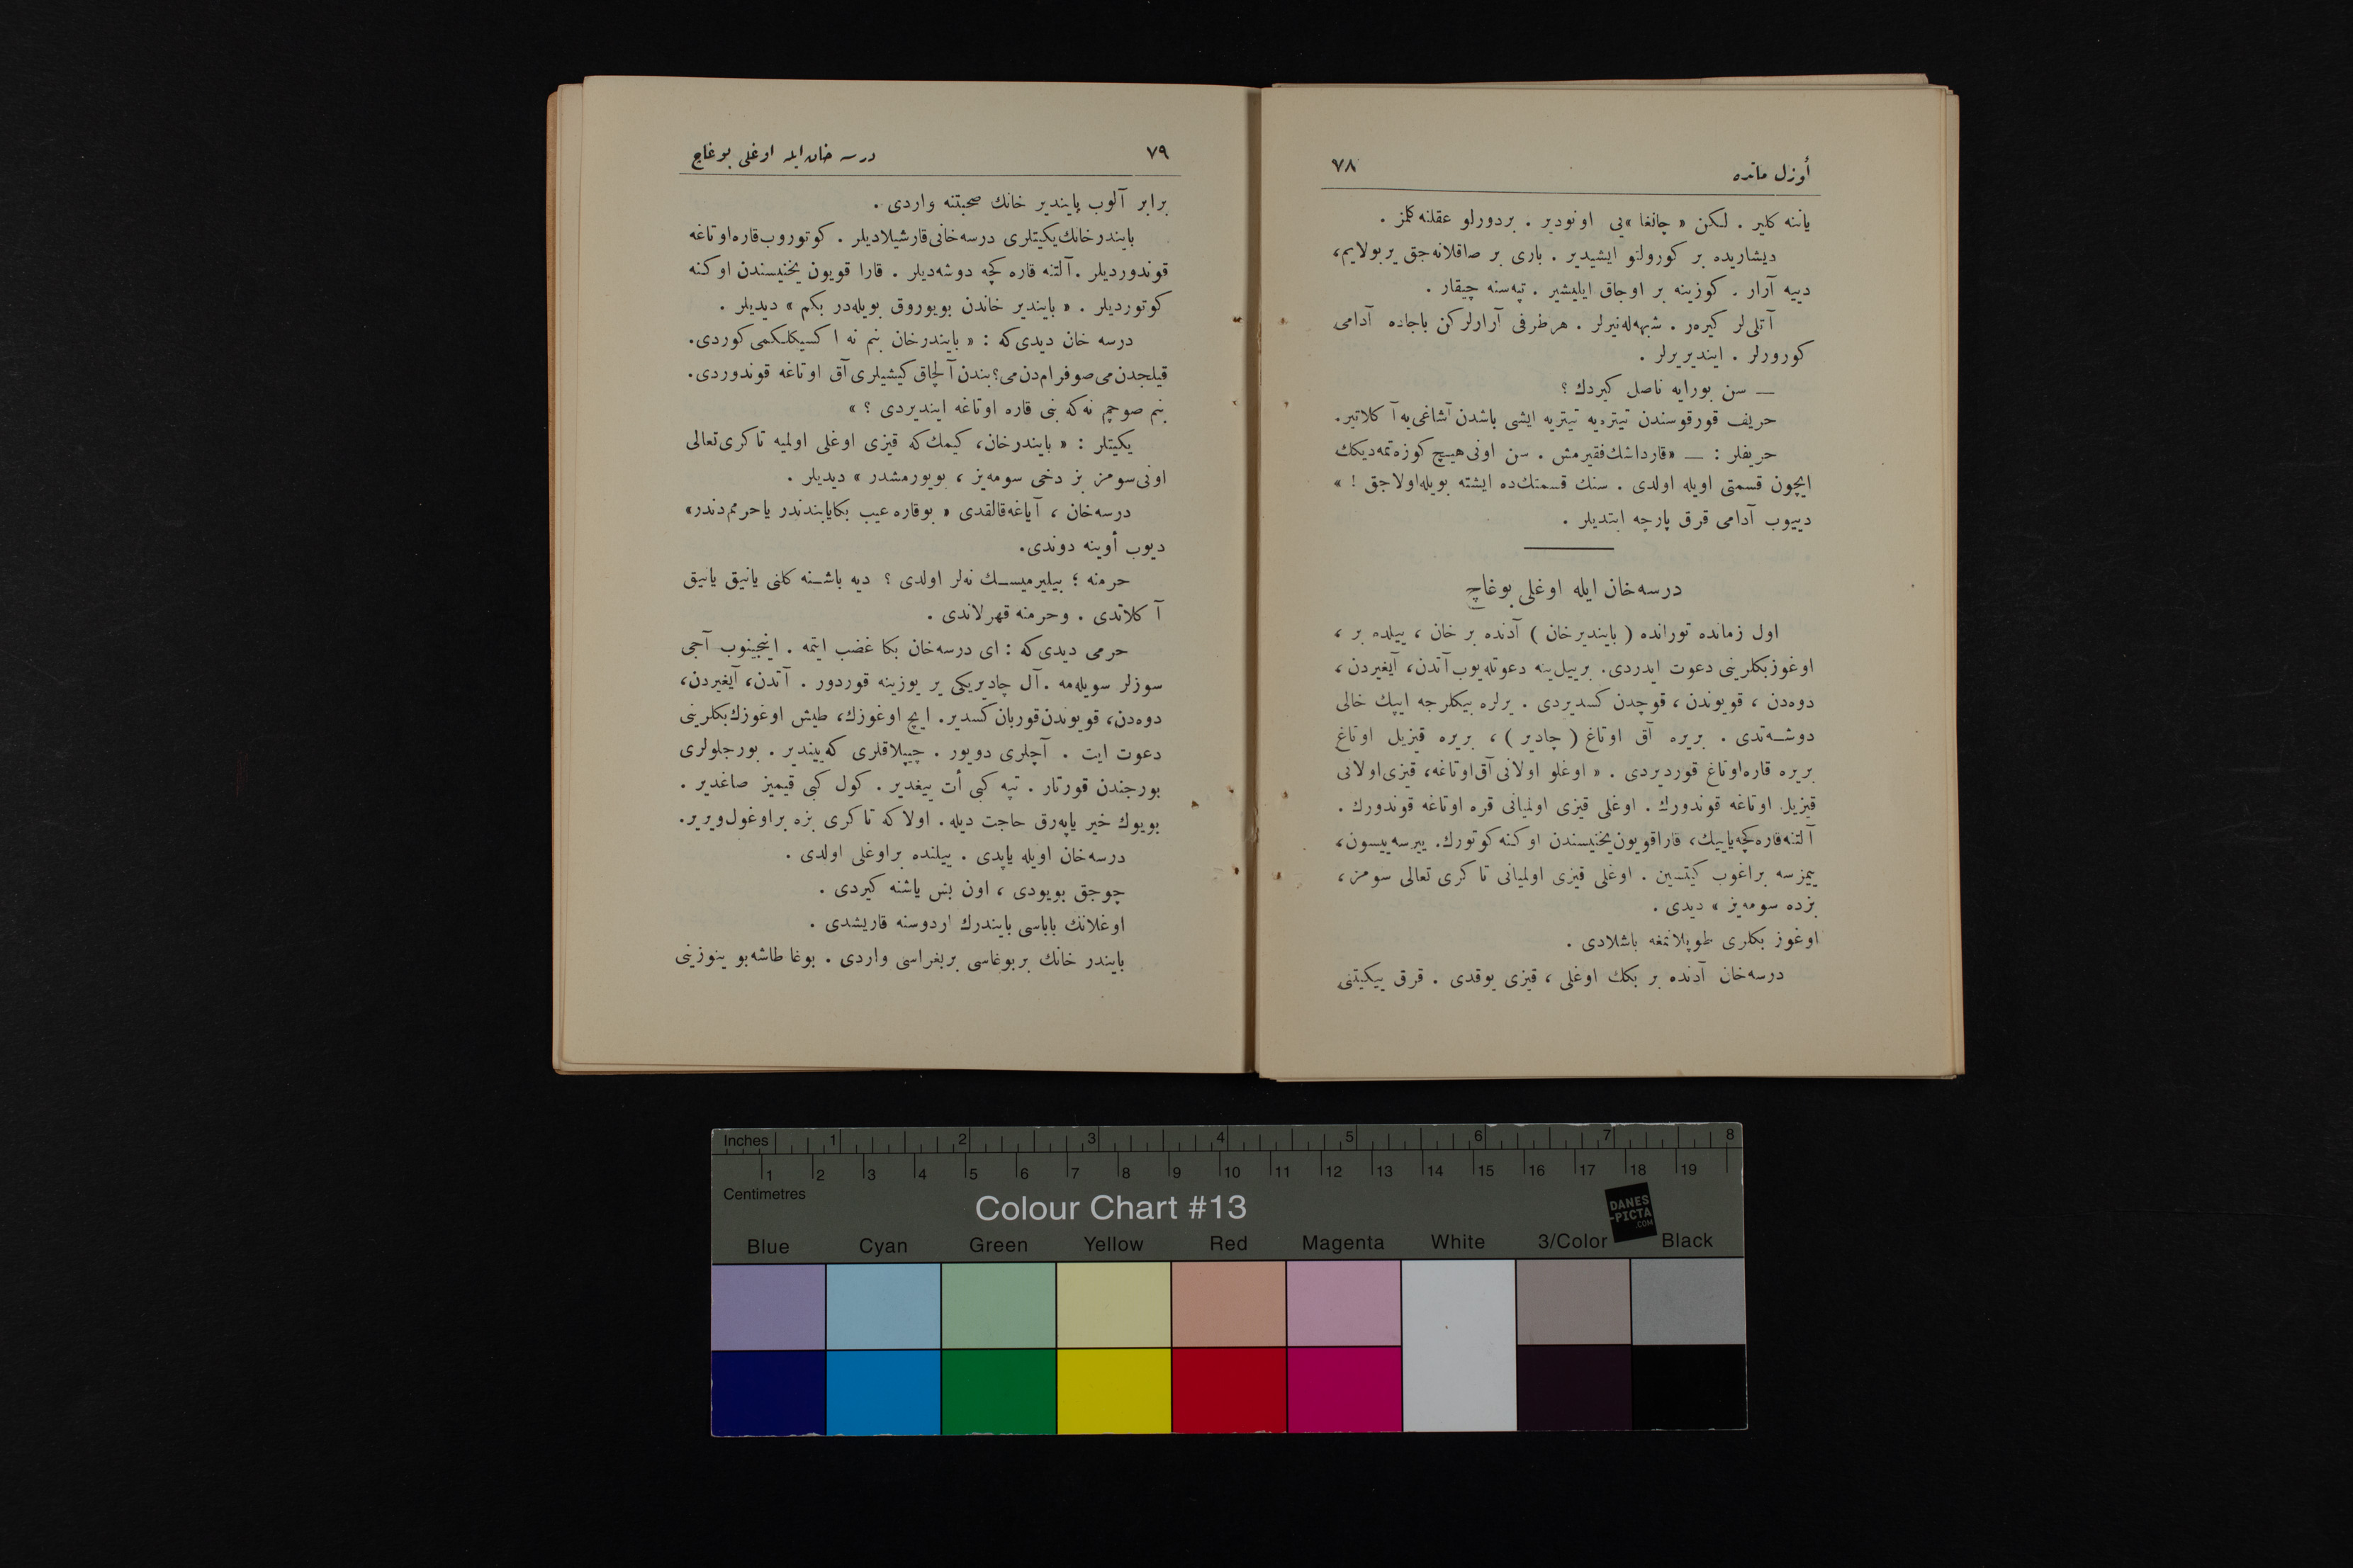 أوزل ماتده
٧٨
ياننه كلير . لكن « چانغا »يى اونودير . بردورلو عقلنه كلمز .
ديشاريده بر كورولتو ايشيدير . بارى بر صاقلانه‌جق ير بولايم،
دييه آرار . كوزينه بر اوجاق ايليشير . تپه‌سنه چيقار .
آتلى‌لر كيره‌ر . شبهه‌له‌نيرلر . هر طرفى آرارلركن باجاده آدامى
كورورلر . اينديريرلر .
— سن بورايه ناصل كيردك ؟
حريف قورقوسندن تيتره‌يه تيتريه ايشى باشدن آشاغى‌يه آ كلاتير.
حريفلر : — «قارداشك فقيرمش . سن اونى هيچ كوزه‌تمه‌ديكك
ايچون قسمتى اويله اولدى . سنك قسمتك‌ده ايشته بويله اولاجق ! »
دييوب آدامى قرق پارچه ايتديلر .
درسه‌خان ايله اوغلى بوغاچ
اول زمانده تورانده ( بايندير خان ) آدنده بر خان ، ييلده بر ،
اوغوز بكلرينى دعوت ايدردى. بر ييل ينه دعوتله‌يوب آتدن، آيغيردن ،
دوه‌دن ، قويوندن ، قوچدن كسديردى . يرلره بيكلرجه ايپك خالى
دوشه‌تدى . بريره آق اوتاغ ( چادير ) ، بريره قيزيل اوتاغ
بريره قاره اوتاغ قورديردى . « اوغلو اولانى آق اوتاغه، قيزى اولانى
قيزيل اوتاغه قوندورك . اوغلى قيزى اولميانى قره اوتاغه قوندورك .
آلتنه قاره كچه ياييك، قارا قويون يخنيسندن اوكنه كوتورك. ييرسه ييسون،
ييمزسه براغوب كيتسين . اوغلى قيزى اولميانى تاكرى تعالى سومز ،
بزده سومه‌يز » ديدى .
اوغوز بكلرى طوپلانمغه باشلادى .
درسه‌خان آدنده بر بكك اوغلى ، قيزى يوقدى . قرق ييكيتنى
٧٩
درسه خان ايله اوغلى بوغاچ
برابر آلوب بايندير خانك صحبتنه واردى .
بايندرخانك يكيتلرى درسه‌خانى قارشيلاديلر . كوتوروب قاره اوتاغه
قوندورديلر . آلتنه قاره كچه دوشه‌ديلر . قارا قويون يخنيسندن اوكنه
كوتورديلر . « بايندير خاندن بويوروق بويله‌در بكم » ديديلر .
درسه خان ديدى‌كه : « بايندرخان بنم نه اكسيكلكمى كوردى.
قيلجدن‌مى صوفرامدن‌مى؟ بندن آلچاق كيشيلرى آق اوتاغه قوندوردى.
بنم صوچم نه‌كه بنى قاره اوتاغه اينديردى ؟ »
يكيتلر : « بايندرخان، كيمك‌كه قيزى اوغلى اولميه تاكرى تعالى
اونى سومز بز دخى سومه‌يز ، بويورمشدر » ديديلر .
درسه‌خان ، آياغه قالقدى « بو قاره عيب بكا يا بندندر يا حرممدندر»
ديوب أوينه دوندى.
حرمنه ؛ بيليرميسك نه‌لر اولدى ؟ ديه باشنه كلنى يانيق يانيق
آ كلاتدى . وحرمنه قهرلاندى .
حرمى ديدى‌كه : اى درسه‌خان بكا غضب ايتمه . اينجينوب آجى
سوزلر سويله‌مه . آل چاديريكى ير يوزينه قوردور . آتدن، آيغيردن،
دوه‌دن، قويوندن قوربان كسدير. ايچ اوغوزك، طيش اوغوزك بكلرينى
دعوت ايت . آچلرى دويور . چيپلاقلرى كه‌ييندير . بورجلولرى
بورجندن قورتار . تپه كبى أت ييغدير . كول كبى قيميز صاغدير .
بويوك خير ياپه‌رق حاجت ديله . اولاكه تاكرى بزه بر اوغول ويرير.
درسه‌خان اويله ياپدى . ييلنده بر اوغلى اولدى .
چوجق بويودى ، اون بش ياشنه كيردى .
اوغلانك باباسى بايندرك اردوسنه قاريشدى .
بايندر خانك بر بوغاسى بر بغراسى واردى . بوغا طاشه بوينوزينى
Inches 1 2 3 4 5 6 7 8
1 2 3 4 5 6 7 8 9 10 11 12 13 14 15 16 17 18 19
Centimetres
Colour Chart #13
DANES
-PICTA
.COM
Blue Cyan Green Yellow Red Magenta White 3/Color Black